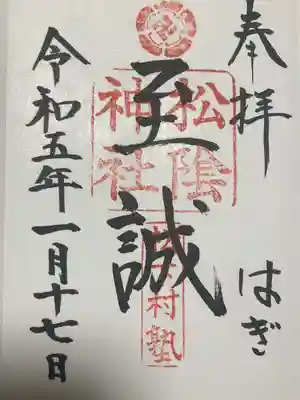 奉拝
はぎ
至誠
松陰
神社
松下村塾
令和五年一月十七日